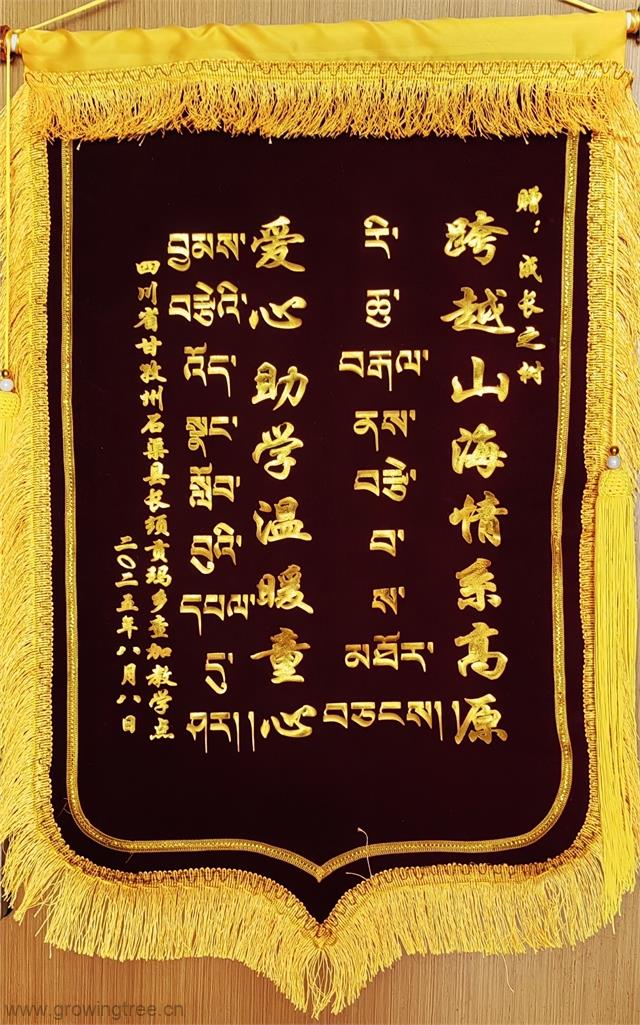 赠：成长之树
跨越山海情系高原
རི་ཆུ་བརྒལ་ནས་བརྩེ་བ་ས་མཐོར་བཅངས། །
爱心助学温暖童心
བྱམས་བརྩེའི་འོད་སྣང་སློབ་བུའི་དཔལ་དུ་ཤར། །
四川省甘孜州石渠县长须贡玛乡查加教学点
二〇二五年八月八日
www.growingtree.cn